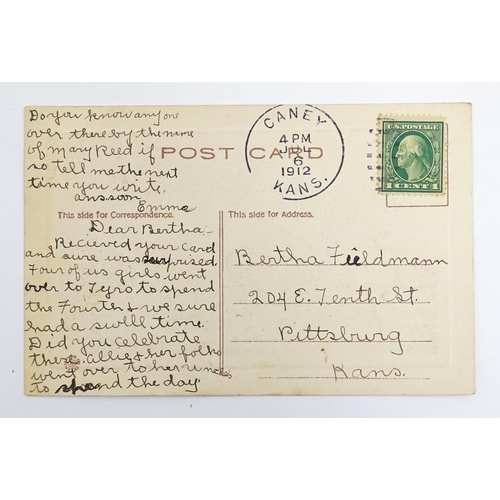 Do you know any one
over there by the name
of Mary Reed if
so tell me the next
time you write.
ans soon
Emma
POST CARD
CANEY
4 PM
JUL
6
1912
KANS.
U.S. POSTAGE
1 CENT 1
This side for Correspondence.
This side for Address.
Dear Bertha-
Recieved your card
and sure was surprised
Four of us girls went
over to Tyro to spend
the Fourth & we sure
had a swell time.
Did you celebrate
there. Allie & her folks
went over to her uncles
to spend the day.
Bertha Fieldmann
204 E. Tenth St.
Pittsburg
Kans.